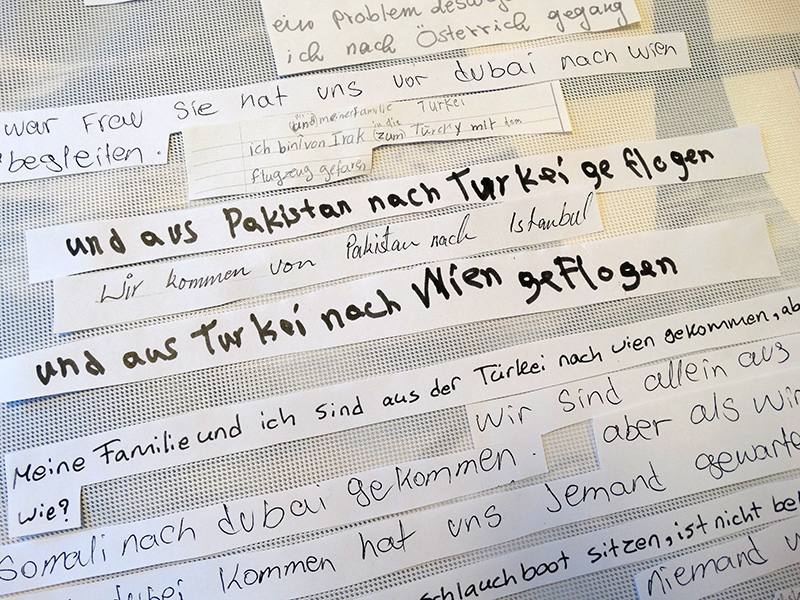 ein Problem
ich nach Österreich gegang
war Frau Sie hat uns vor dubai nach Wien
begleiten.
(und) meinerfamilie Turkei
in die
ich bin von Irak (zum Türcky mit dem
flugzeug gefaren
und aus Pakistan nach Turkei ge flogen
Wir kommen von Pakistan nach Istanbul
und aus Turkei nach Wien geflogen
Meine Familie und ich sind aus der Türkei nach vien gekommen, ab
wie?
Wir sind allein aus
Somali nach dubai gekommen.
aber als wir
dubei kommen hat uns Jemand gewarte
schlauchboot sitzen, ist nicht be
niemand